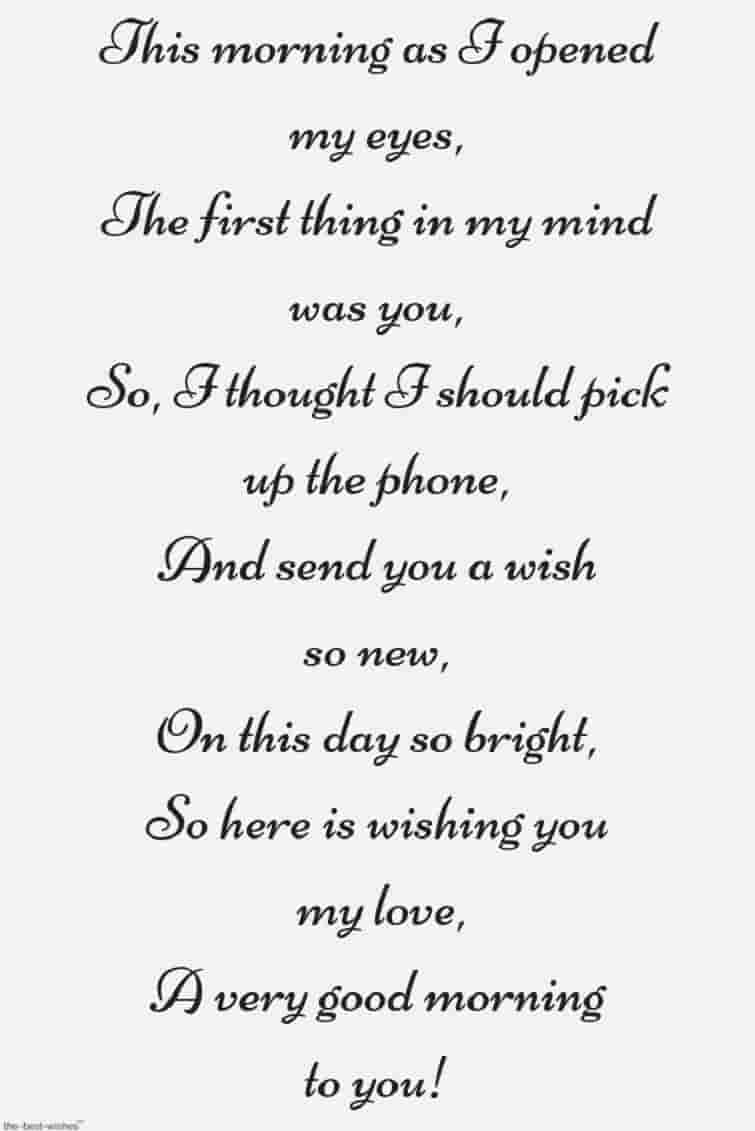 This morning as I opened
my eyes,
The first thing in my mind
was you,
So, I thought I should pick
up the phone,
And send you a wish
so new,
On this day so bright,
So here is wishing you
my love,
A very good morning
to you!
the-best-wishes™